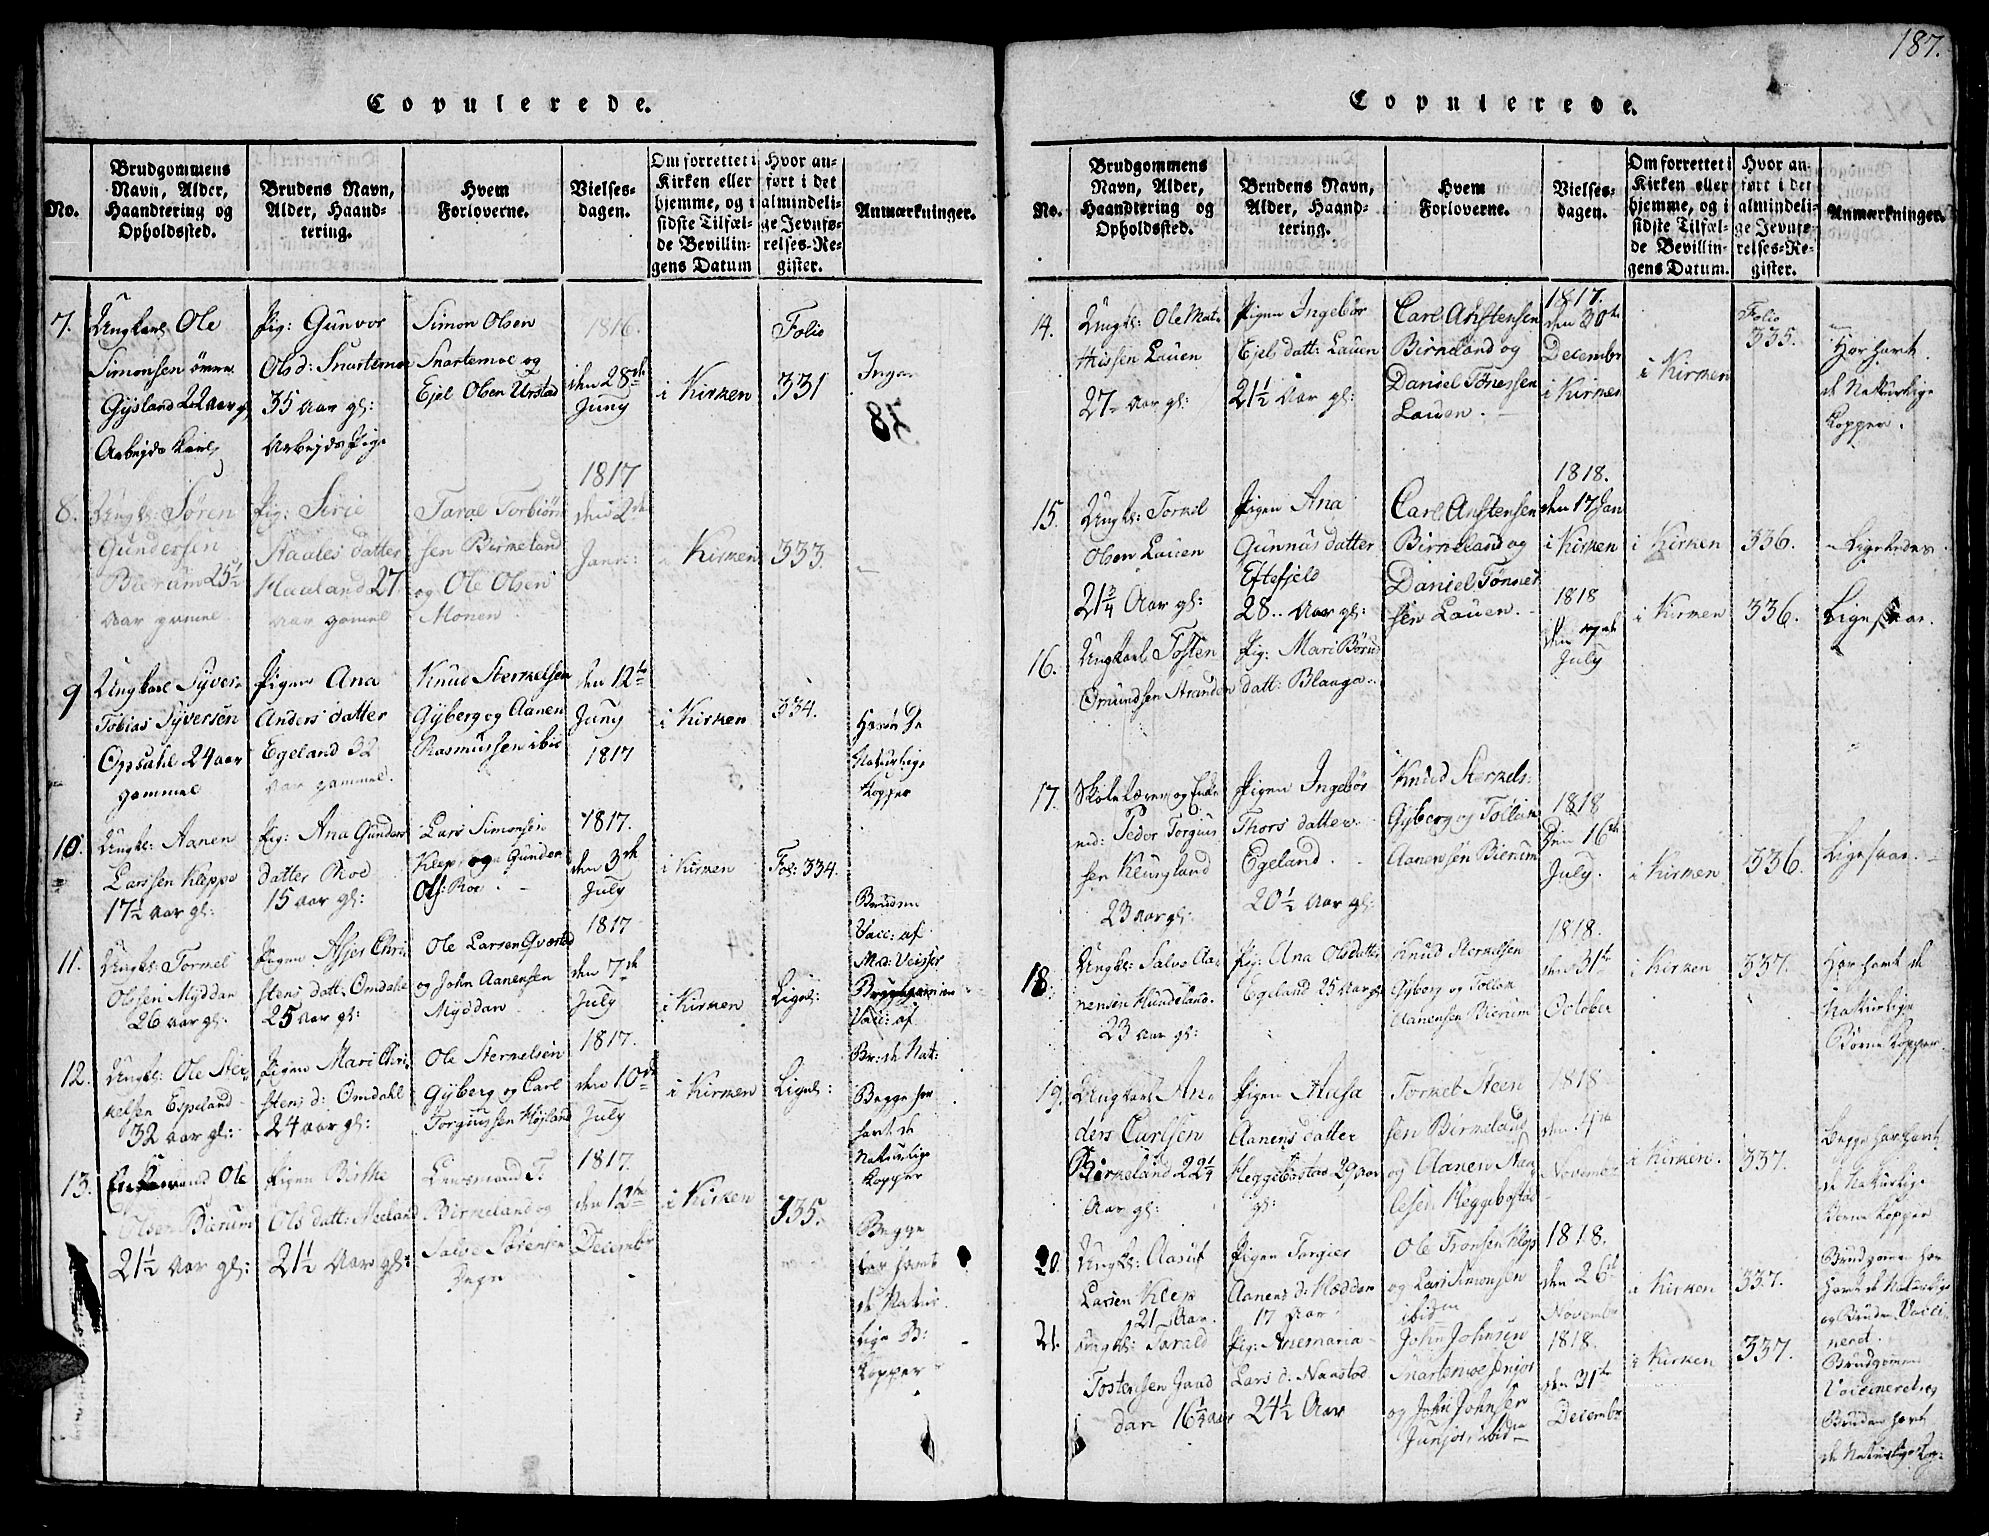 187.
Copulerede.
No.
Brudgommens Navn, Alder, Haandtering og Opholdssted.
Brudens Navn, Alder, Haandtering.
Hvem Forloverne.
Vielsesdagen.
Om forrettet i Kirken eller hjemme, og i sidste Tilfælde Bevillingens Datum
Hvor anført i det almindelige Jevnførelses-Register.
Anmærkninger.
7.
Ungkarl Ole
Simonsen
Gysland 22 aar gl
Arbejds Karl
Pig: Gunvor
Olsd: Snartemoe
35 Aar gl:
Arbejds Pige
Simon Olsen
Snartemoe og
Ejel Olsen Urstad
1816.
den 28de
Juny
i Kirken
Folio
331
Ingen
8.
Ungk: Søren
Gundersen
Bierum 25½
Aar gammel
Pig: Sirie
Staales datter
Haaland 27
Aar gammel
Taral Torbiørn
sen Birkeland
og Ole Olsen
Monen
1817
den 2de
Janr:
Kirken
333.
9
Ungkarl Syver
Tobias Syversen
Opsahl 24 aar
gammel
Pigen Ana
Anders datter
Egeland 32
Aar gammel.
Knud Sterkelsen
Gyberg og Aanen
Rasmussen ibid
den 12te
Juny
1817
i Kirken
334.
Naturlige
Kopper
10.
Ungk: Aanen
Larssen Kleppe
17½ Aar gl:
Pig: Ana Gunders
datter Roe
15 Aar gl:
Lars Simonsen
Klep og Gunder
Ols: Roe
1817.
den 3de
July
i Kirken
Fol: 334.
Bruden
Vacc: af
Ma: Veisser
11.
Ungk: Tormel
Olssen Myddan
26 aar gl:
Pigen Asjer Chri
stens datt: Omdahl
25 Aar gl:
Ole Larsen Qvæstad
og John Aanensen
Myddan
1817
den 7de
July
i Kirken
Ligel:
Brudgommen
Vacc: af
Br: de Nat:
12.
Ungk: Ole Ster
kelsen Espeland
32 aar gl:
Pigen Mari Chri
stens d: Omdahl
24 aar gl:
Ole Sterkelsen
Gyberg og Carl
Torgiussen Højland
1817.
den 10de
July
i Kirken
Ligel:
Begge har
havt de
Naturlige
Kopper
13.
Enkemand Ole
Olsen Bierum
21½ Aar gl:
Pigen Birthe
Ols datt: Neeland
21½ Aar gl:
Lensmand T.
Birkeland og
Salve Sørensen
1817.
den 12te
Decembr
i Kirken
335.
Begge
har havt
de Natur
lige B:
Kopper
Copulerede.
No.
Brudgommens Navn, Alder, Haandtering og Opholdssted.
Brudens Navn, Alder, Haandtering.
Hvem Forloverne.
Vielsesdagen.
Om forrettet i Kirken eller hjemme, og i sidste Tilfælde Bevillingens Datum.
Hvor anført i det almindelige Jevnførelses-Register.
Anmærkninger.
14.
Ungk: Ole Mat
thissen Lauen
27 Aar gl:
Pigen Ingebør
Ejels datt: Lauen
21½ Aar gl:
Carl Anstensen
Birkeland og
Daniel Tønessen
Lauen.
1817.
den 30te
Decembr
i Kirken
i Kirken
Folio
335.
Har havt
de Naturlige
Kopper.
15.
Ungk: Tormel
Olsen Lauen
21¾ Aar gl:
Pigen Ana
Gunnus datter
Eftefjeld
28. Aar gl:
Carl Anstensen
Birkeland og
Daniel Tønnes
sen Lauen.
1818.
den 17 Jan
i Kirken
i Kirken
336.
Ligeledes
16.
Ungkarl Tosten
Omundsen Stranden
Pig: Mari Børud
datt: Blaaga
1818
July
i Kirken
336.
Ligesaa.
17.
Skolelærer og Enke
md: Peder Torgius
sen Klungland
23 Aar gl:
Pigen Ingebør
Thors datter
Egeland.
20½ Aar gl:
Knud Sterkels:
Gyberg og Tollon
Aanensen Bierum
1818
Den 16de
July.
i Kirken
336.
Ligesaa.
18.
Ungk: Salve Aa
nensen Hundeland.
23 Aar gl:
Pig: Ana Olsdatter
Egeland 25 Aar gl
Knud Sterkelsen
Gyberg og Tollon
Aanensen Bierum
1818.
den 31te
October
i Kirken
337.
Har havt de
Naturlige
Børne Kopper.
19.
Ungkarl An
ders Carlsen
Birkeland 22¼
Aar gl:
Pigen Aasa
Aanens datter
Heggebøstad 29 aar
gl:
Tormel Steen
sen Birkeland
og Aanen Staa
lesen Heggebøstad
1818
Novembr
i Kirken.
337
Begge har havt
de Naturlige
Børne Kopper
20.
Ungk: Aasuf
Larsen Klep
21 Aar.
Pigen Torgier
Aanens d: Hæddan
17 Aar
Ole Tronsen Klep
og Lars Simonsen
ibid
1818.
den 26de
Novembr
i Kirken
337.
Brudgomen har
havt de Naturlige
og Bruden Vacci
neret.
21.
Ungk: Tarald
Tostensen Jaad
dan 16¼ aar
Pig: Anemaria
Lars d: Naastad
24½ Aar
John Johnsen
Snartemoe Senjor
og John Johnsen
Junjor ibid
1818.
den 31te
Decembr
i Kirken
337.
Brudgomen
Vaccineret, og
Bruden havt
de Naturlige Kop: